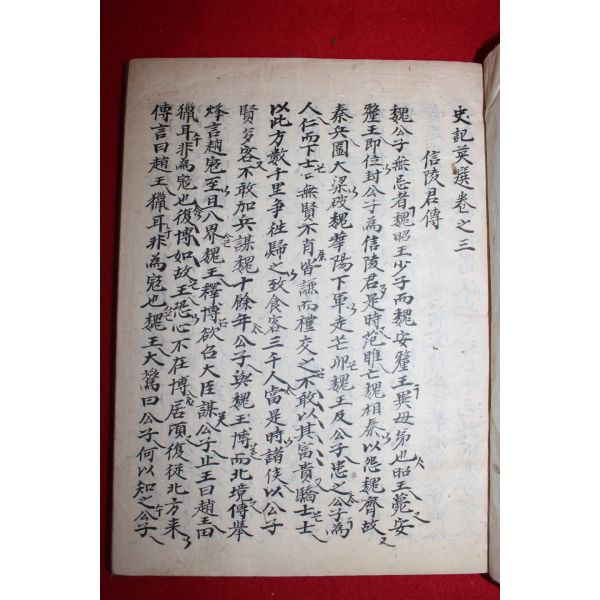 史記英選卷之三
信陵君傳
魏公子無忌者魏昭王少子而魏安釐王異母弟也昭王薨安
釐王即位封公子為信陵君是時范睢亡魏相秦以怨魏齊故
秦兵圍大梁破魏華陽下軍走芒卯魏王及公子患之公子為
人仁而下士士無賢不肖皆謙而禮交之不敢以其富貴驕士士
以此方數千里爭徃歸之致食客三千人當是時諸侯以公子
賢多客不敢加兵謀魏十餘年公子與魏王博而北境傳舉
烽言趙寇至且入界魏王釋博欲召大臣謀公子止王曰趙王田
獵耳非為寇也復博如故王恐心不在博居頃復從北方来
傳言曰趙王獵耳非為寇也魏王大驚曰公子何以知之公子